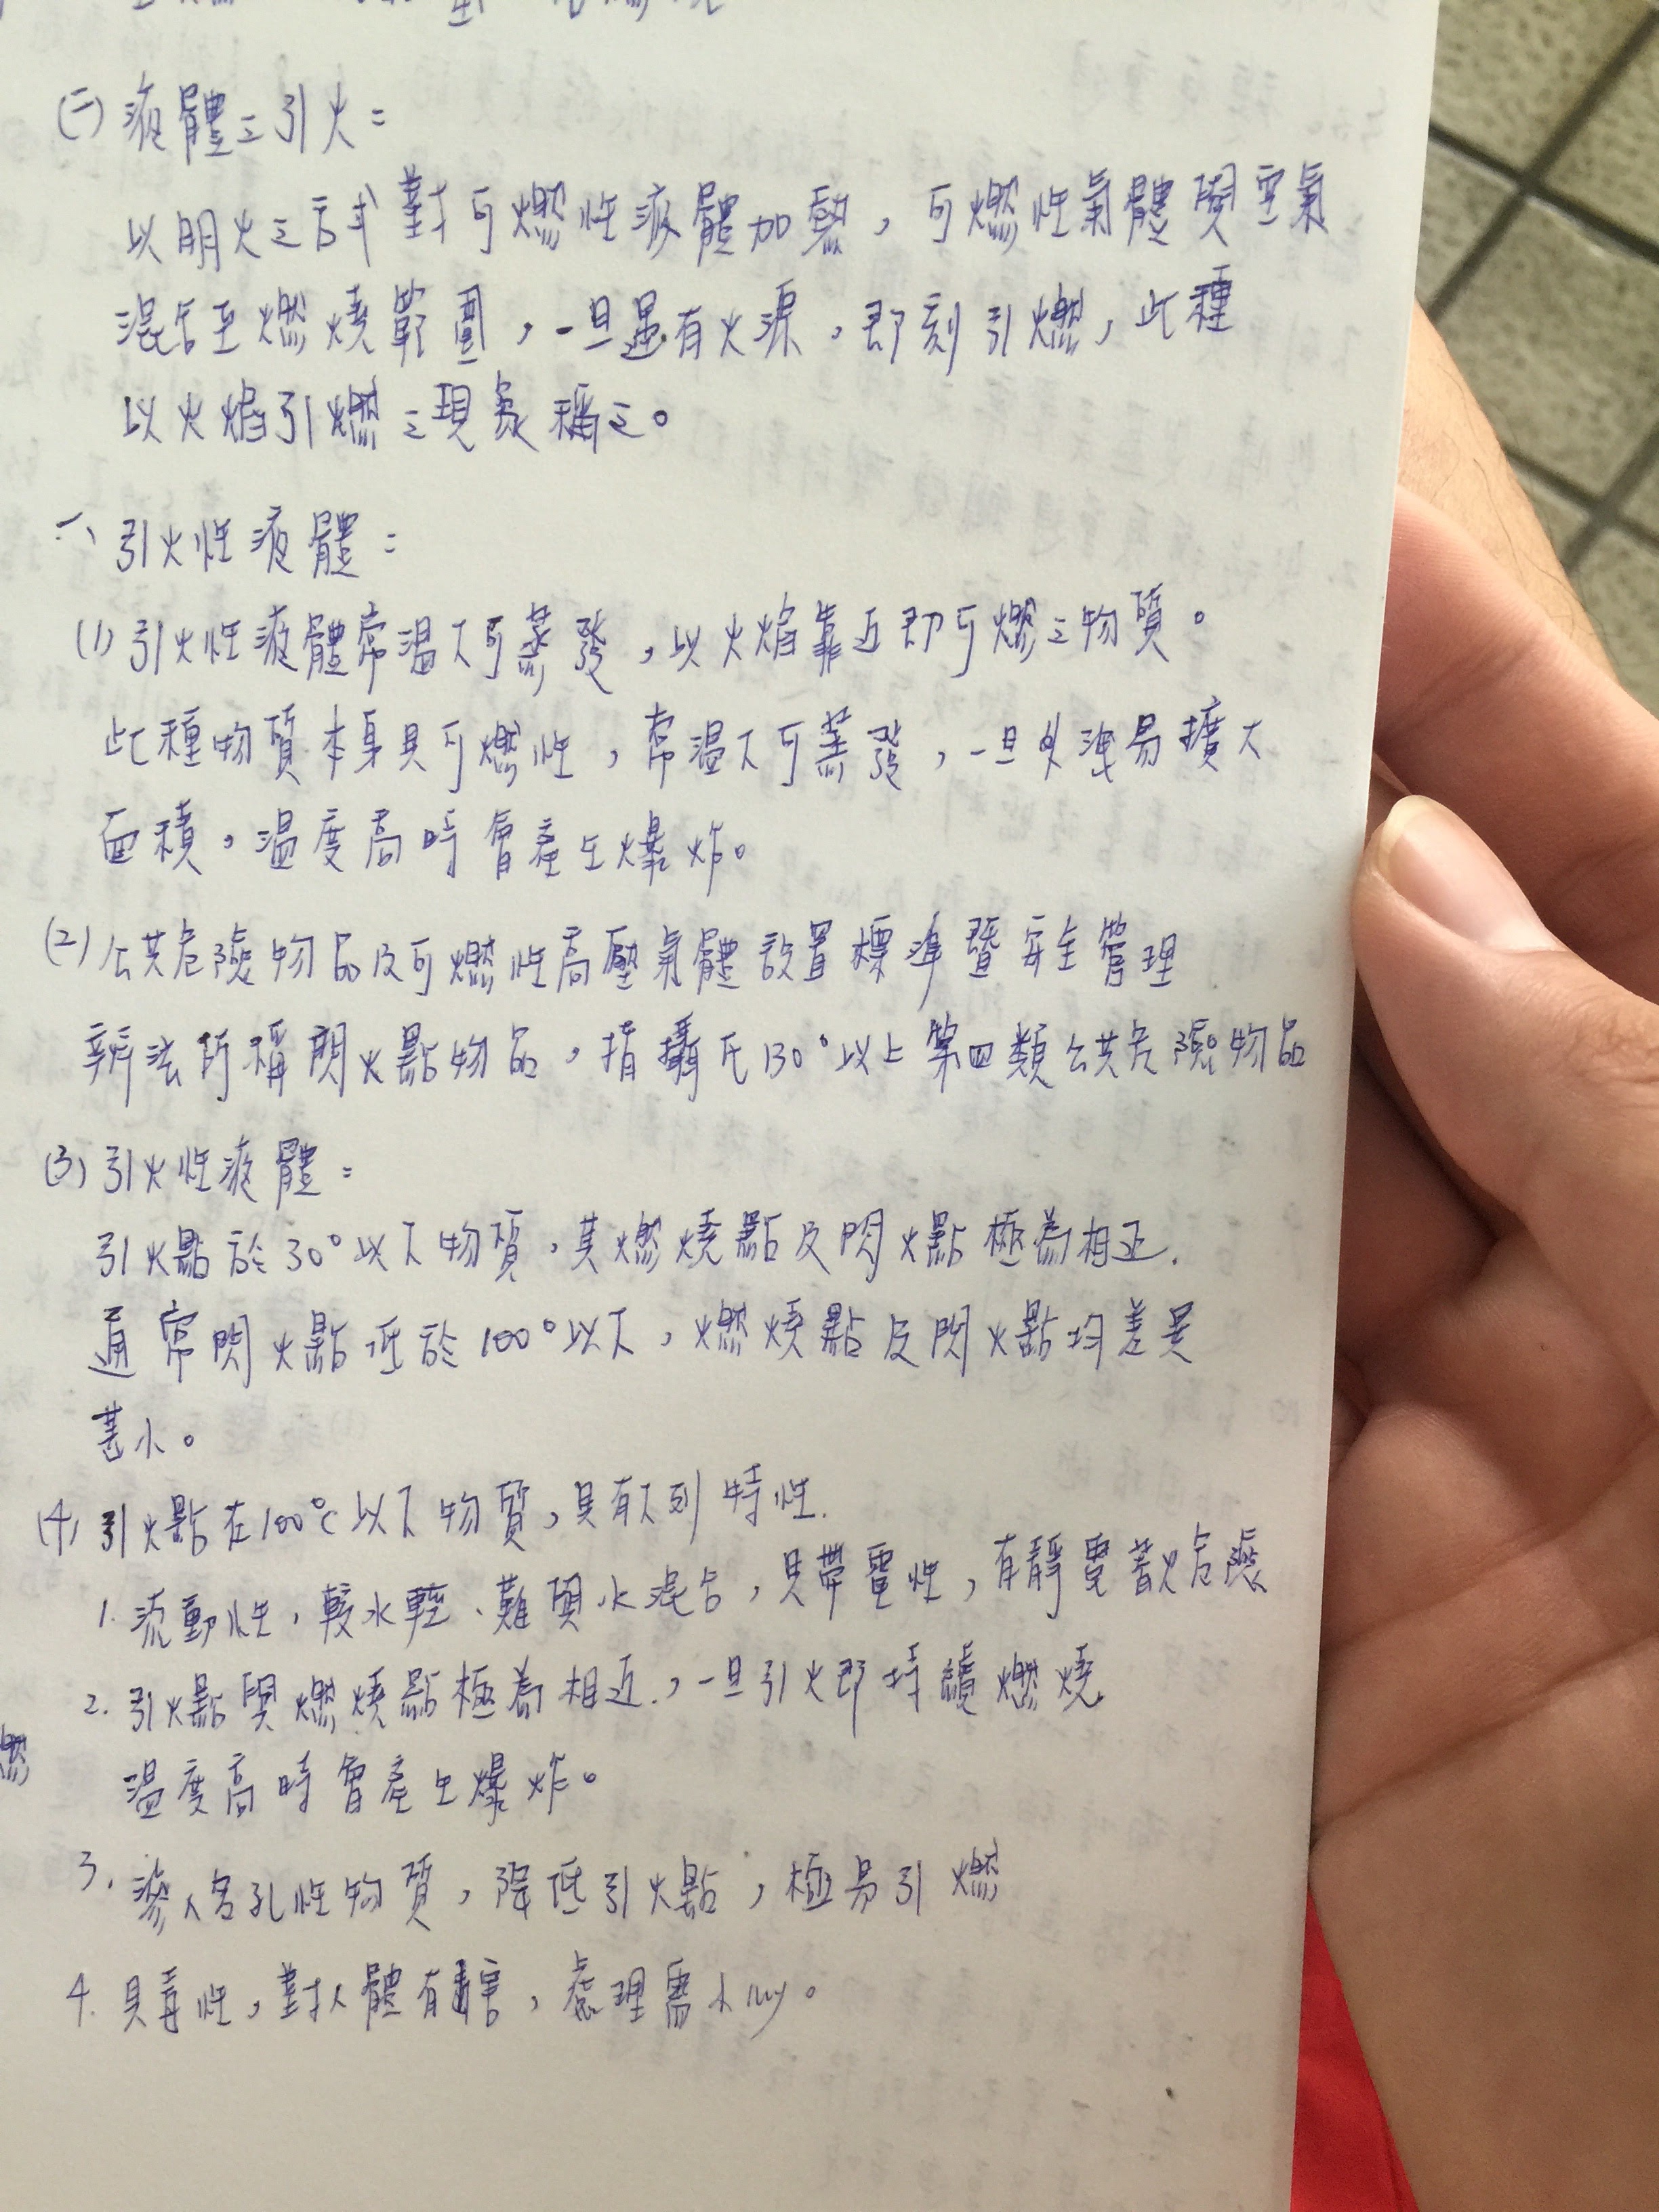 (二)液體之引火：
以明火之試對可燃性液體加熱，可燃性氣體與空氣
混合至燃燒範圍，一旦遇有火源，即刻引燃，此種
以火焰引燃之現象稱之。
一、引火性液體：
(1)引火性液體常溫下可蒸發，以火焰靠近即可燃之物質。
此種物質本身具可燃性，常溫下可蒸發，一旦外洩易擴大
面積，溫度高時會產生爆炸。
(2)公共危險物品及可燃性高壓氣體設置標準暨安全管理
辦法所稱閃火點物品，指攝氏130°以上第四類公共危險物品
(3)引火性液體：
引火點於30°以下物質，其燃燒點及閃火點極為相近.
通常閃火點低於100°以下，燃燒點及閃火點均差異
甚小。
(4)引火點在100°C以下物質，具有下列特性.
1.流動性，較水輕、難與水混合，具帶電性，有靜電蓄火危險
2.引火點與燃燒點極為相近，一旦引火即持續燃燒
溫度高時會產生爆炸。
3.滲入多孔性物質，降低引火點，極易引燃
4.具毒性，對人體有害，處理需小心。
燃